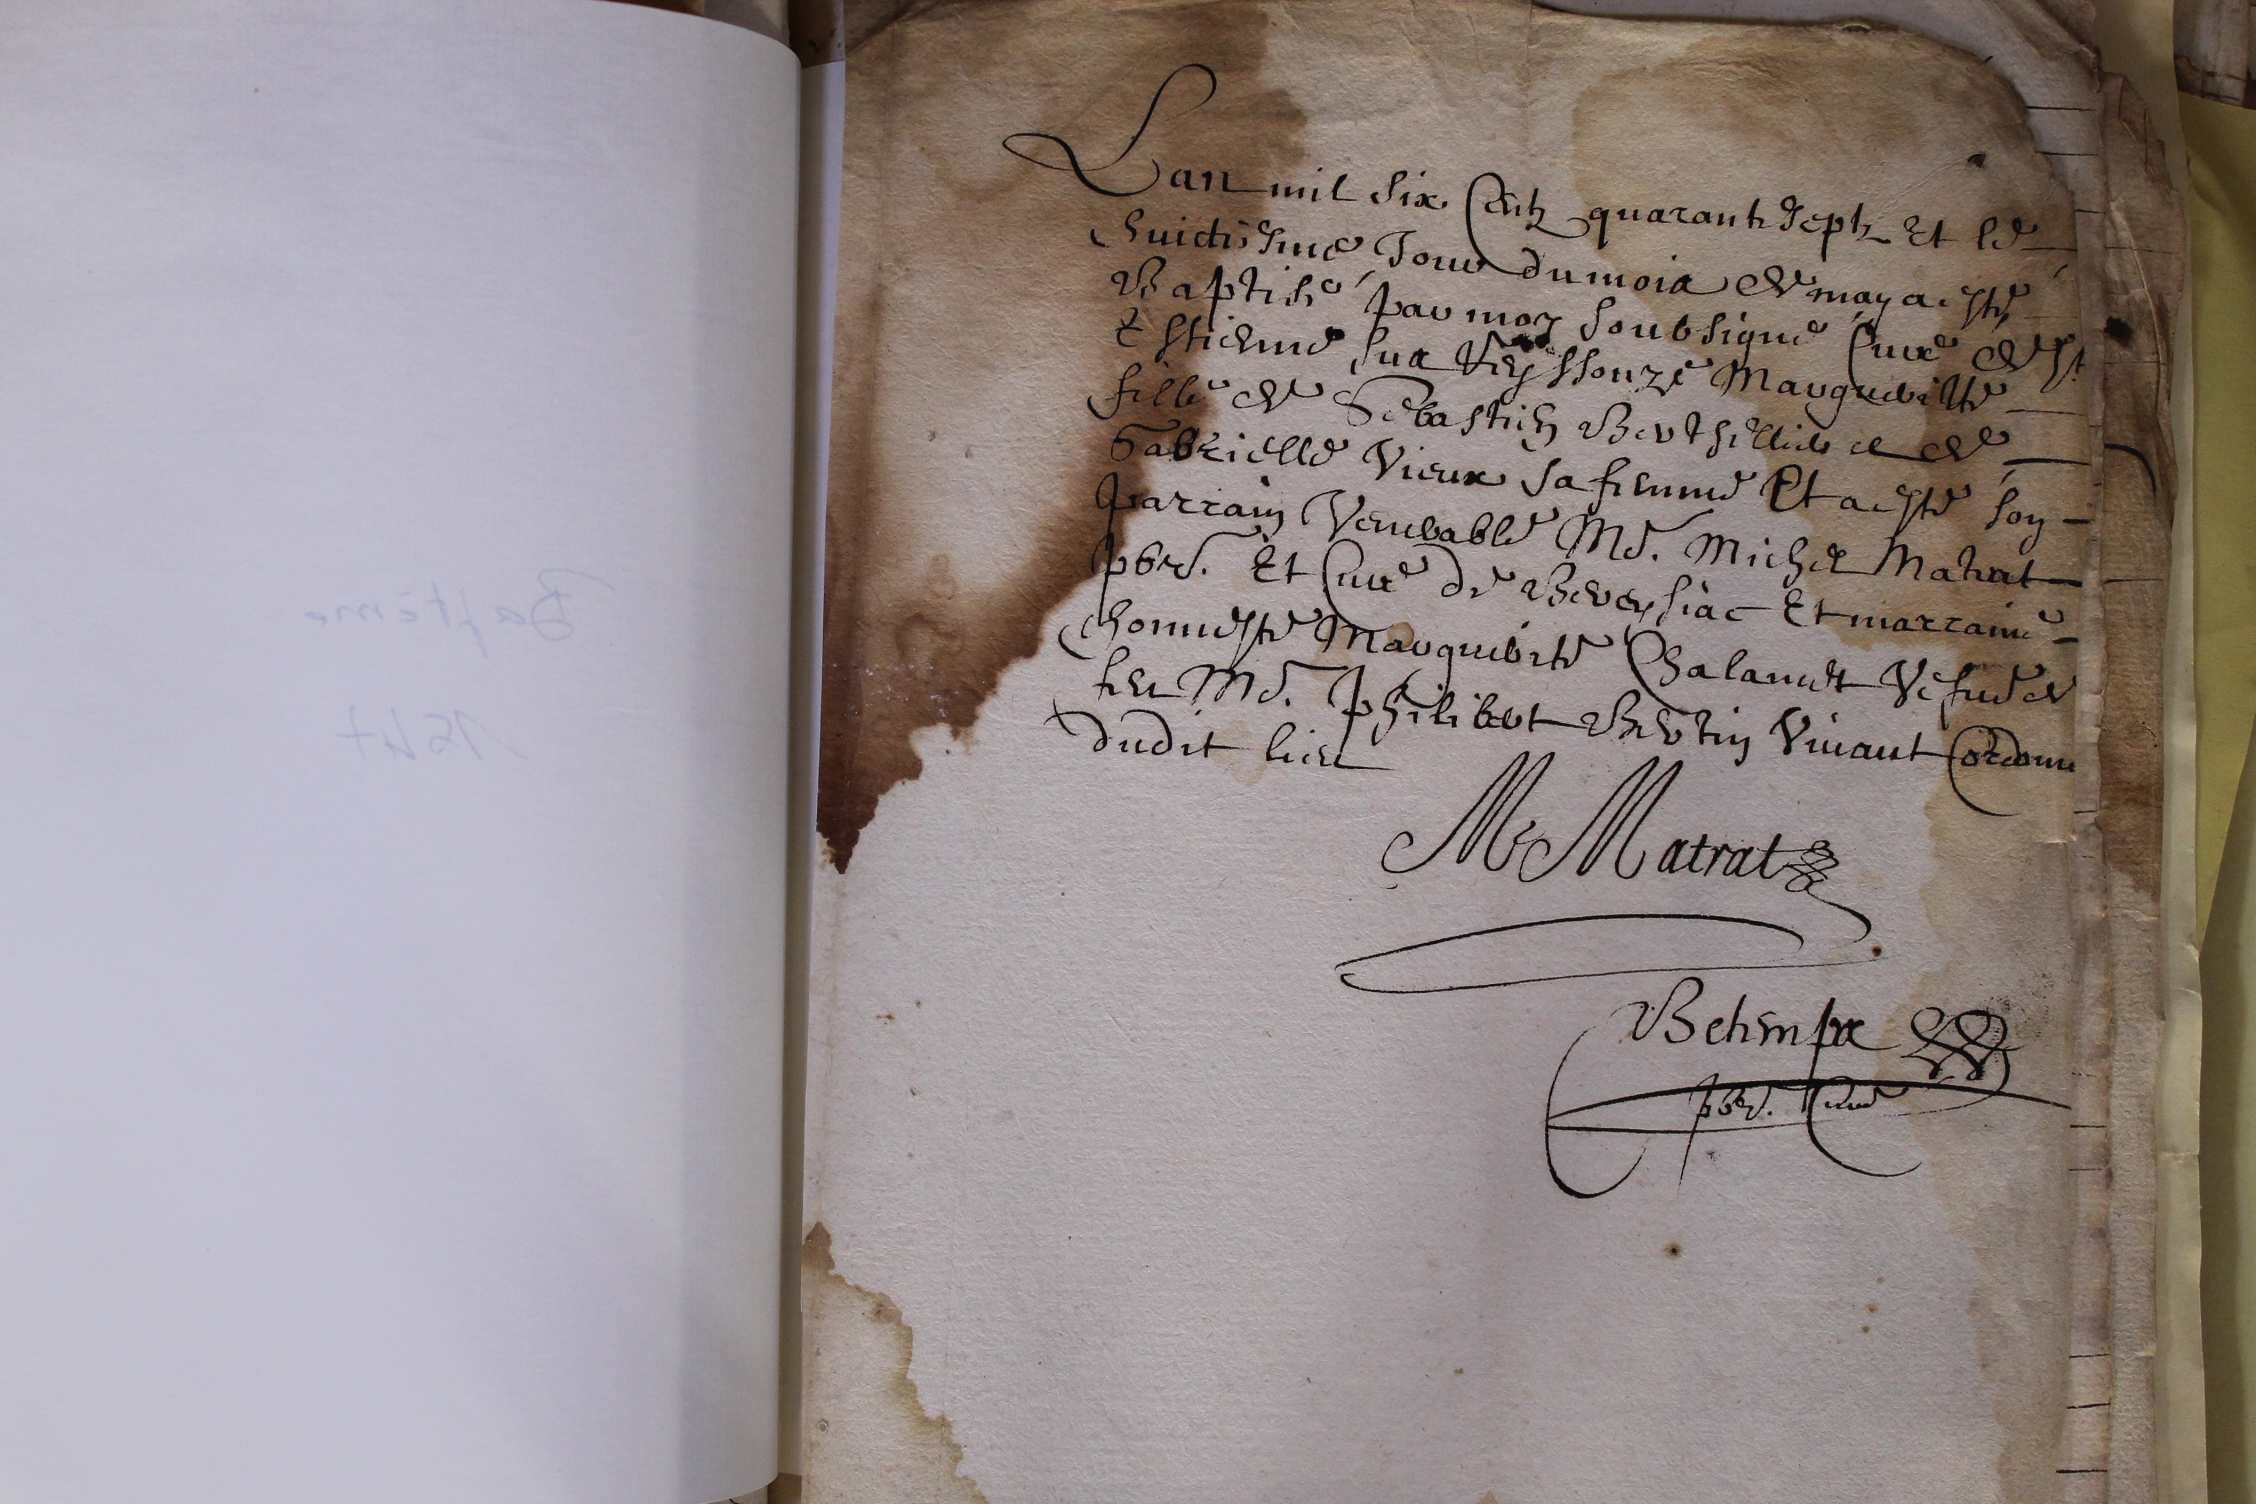 Baptême
1647
Lan mil six Centz quarante Septz Et le
huictiesme Jour du mois de may a esté
Baptisé par moy soubsigné Curé de St
Estienne sus Reyssouze Marguerite
fille de Sebastien et de
Gabrielle Vieux sa femme Et a esté son
parrain Venerable Mre. Michel Matrat
pbre. Et Curé de Bereysiac Et marraine
honneste Marguerite Chalandt Vefue de
feu Mre. Philibert Bertin Viuant
dudit lieu
M Matrat
pbre. Curé